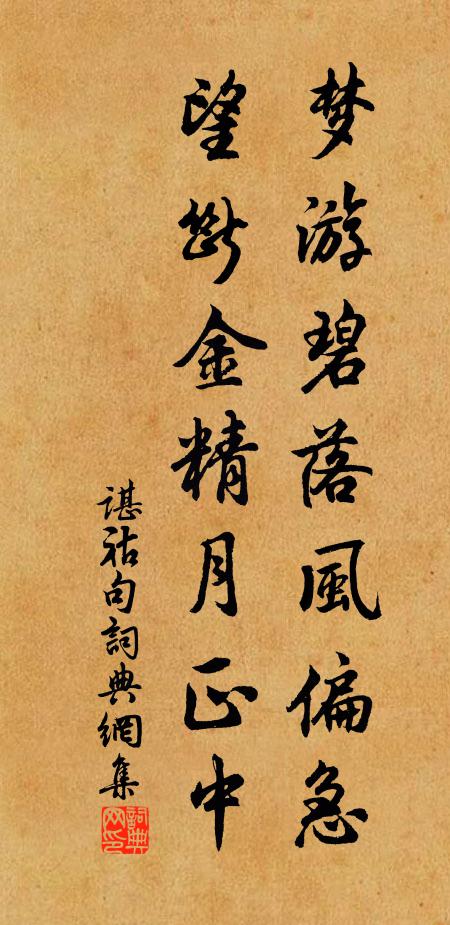 梦游碧落風偏急
望断金精月正中
谌祜句詞典網集
詞典网印